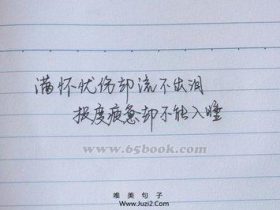 满怀忧伤却流不出泪
极度疲惫却不能入睡
www.65book.com
唯美句子
www.Juzi2.Com